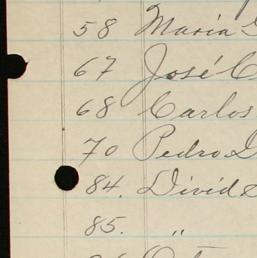 58 Maria
67 José C
68 Carlos
70 Pedro
84. Divid
85. "